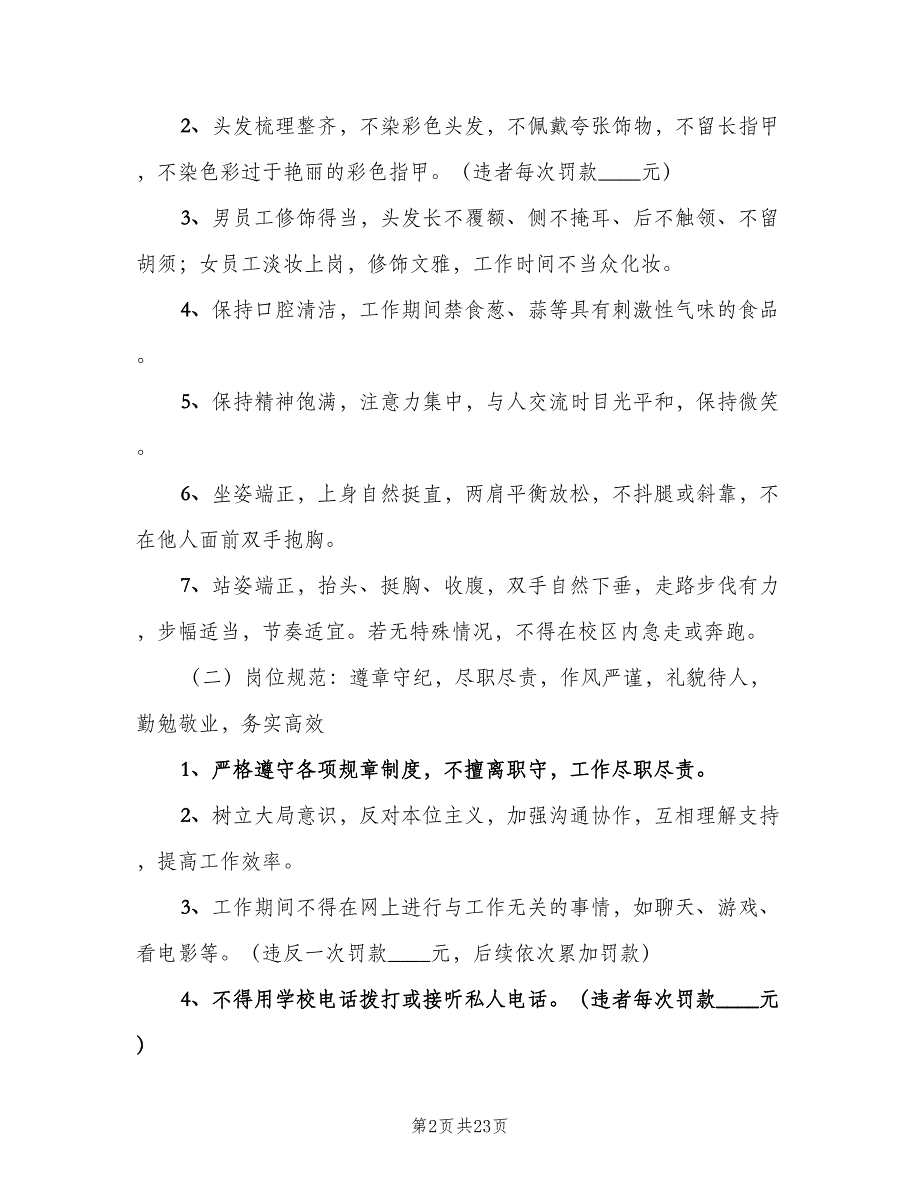 2、头发梳理整齐，不染彩色头发，不佩戴夸张饰物，不留长指甲
，不染色彩过于艳丽的彩色指甲。（违者每次罚款____元）
3、男员工修饰得当，头发长不覆额、侧不掩耳、后不触领、不留
胡须；女员工淡妆上岗，修饰文雅，工作时间不当众化妆。
4、保持口腔清洁，工作期间禁食葱、蒜等具有刺激性气味的食品
。
5、保持精神饱满，注意力集中，与人交流时目光平和，保持微笑
。
6、坐姿端正，上身自然挺直，两肩平衡放松，不抖腿或斜靠，不
在他人面前双手抱胸。
7、站姿端正，抬头、挺胸、收腹，双手自然下垂，走路步伐有力
，步幅适当，节奏适宜。若无特殊情况，不得在校区内急走或奔跑。
（二）岗位规范：遵章守纪，尽职尽责，作风严谨，礼貌待人，
勤勉敬业，务实高效
1、严格遵守各项规章制度，不擅离职守，工作尽职尽责。
2、树立大局意识，反对本位主义，加强沟通协作，互相理解支持
，提高工作效率。
3、工作期间不得在网上进行与工作无关的事情，如聊天、游戏、
看电影等。（违反一次罚款____元，后续依次累加罚款）
4、不得用学校电话拨打或接听私人电话。（违者每次罚款____元
）
第2页共23页